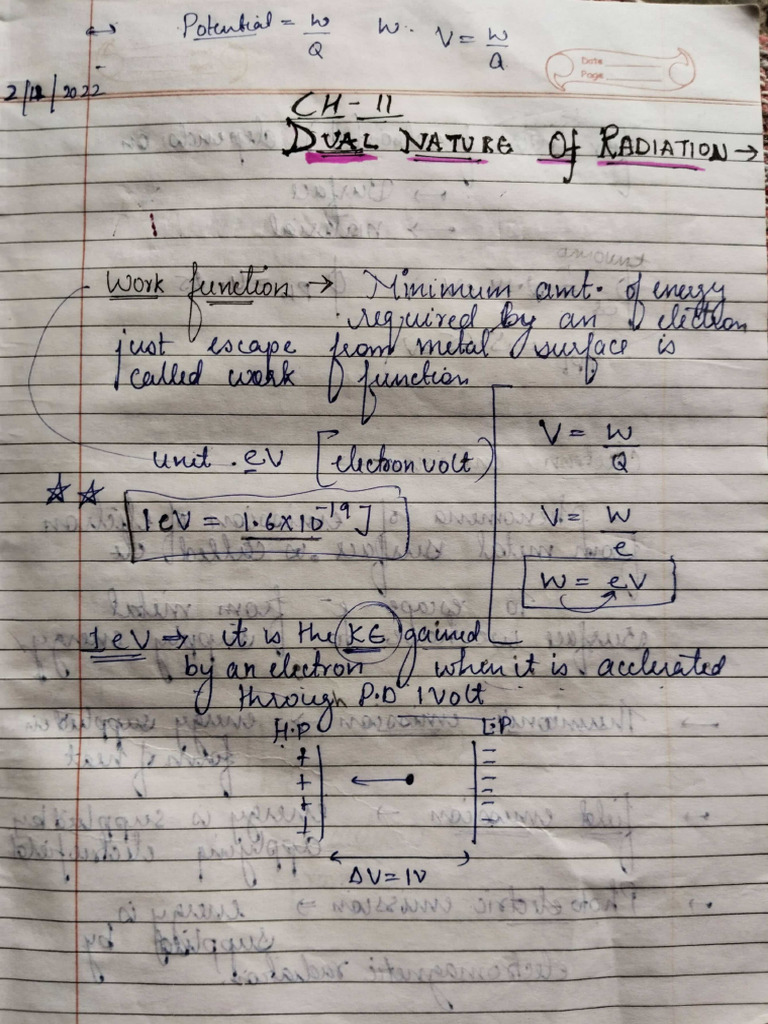 Potential = W/Q W. V = W/Q
Date
Page
2/11/2022
CH-11
DUAL NATURE Of RADIATION →
Work function → Minimum amt. of energy
required by an electron
just escape from metal surface is
called work function
unit . eV [electron volt]
V = W/Q
1 eV = 1.6x10^-19 J
V = W/e
W = eV
1 eV → it is the KE gained
by an electron when it is accelerated
through P.D 1 Volt
H.P L.P
+ −
+ −
+ −
+ −
ΔV = 1V